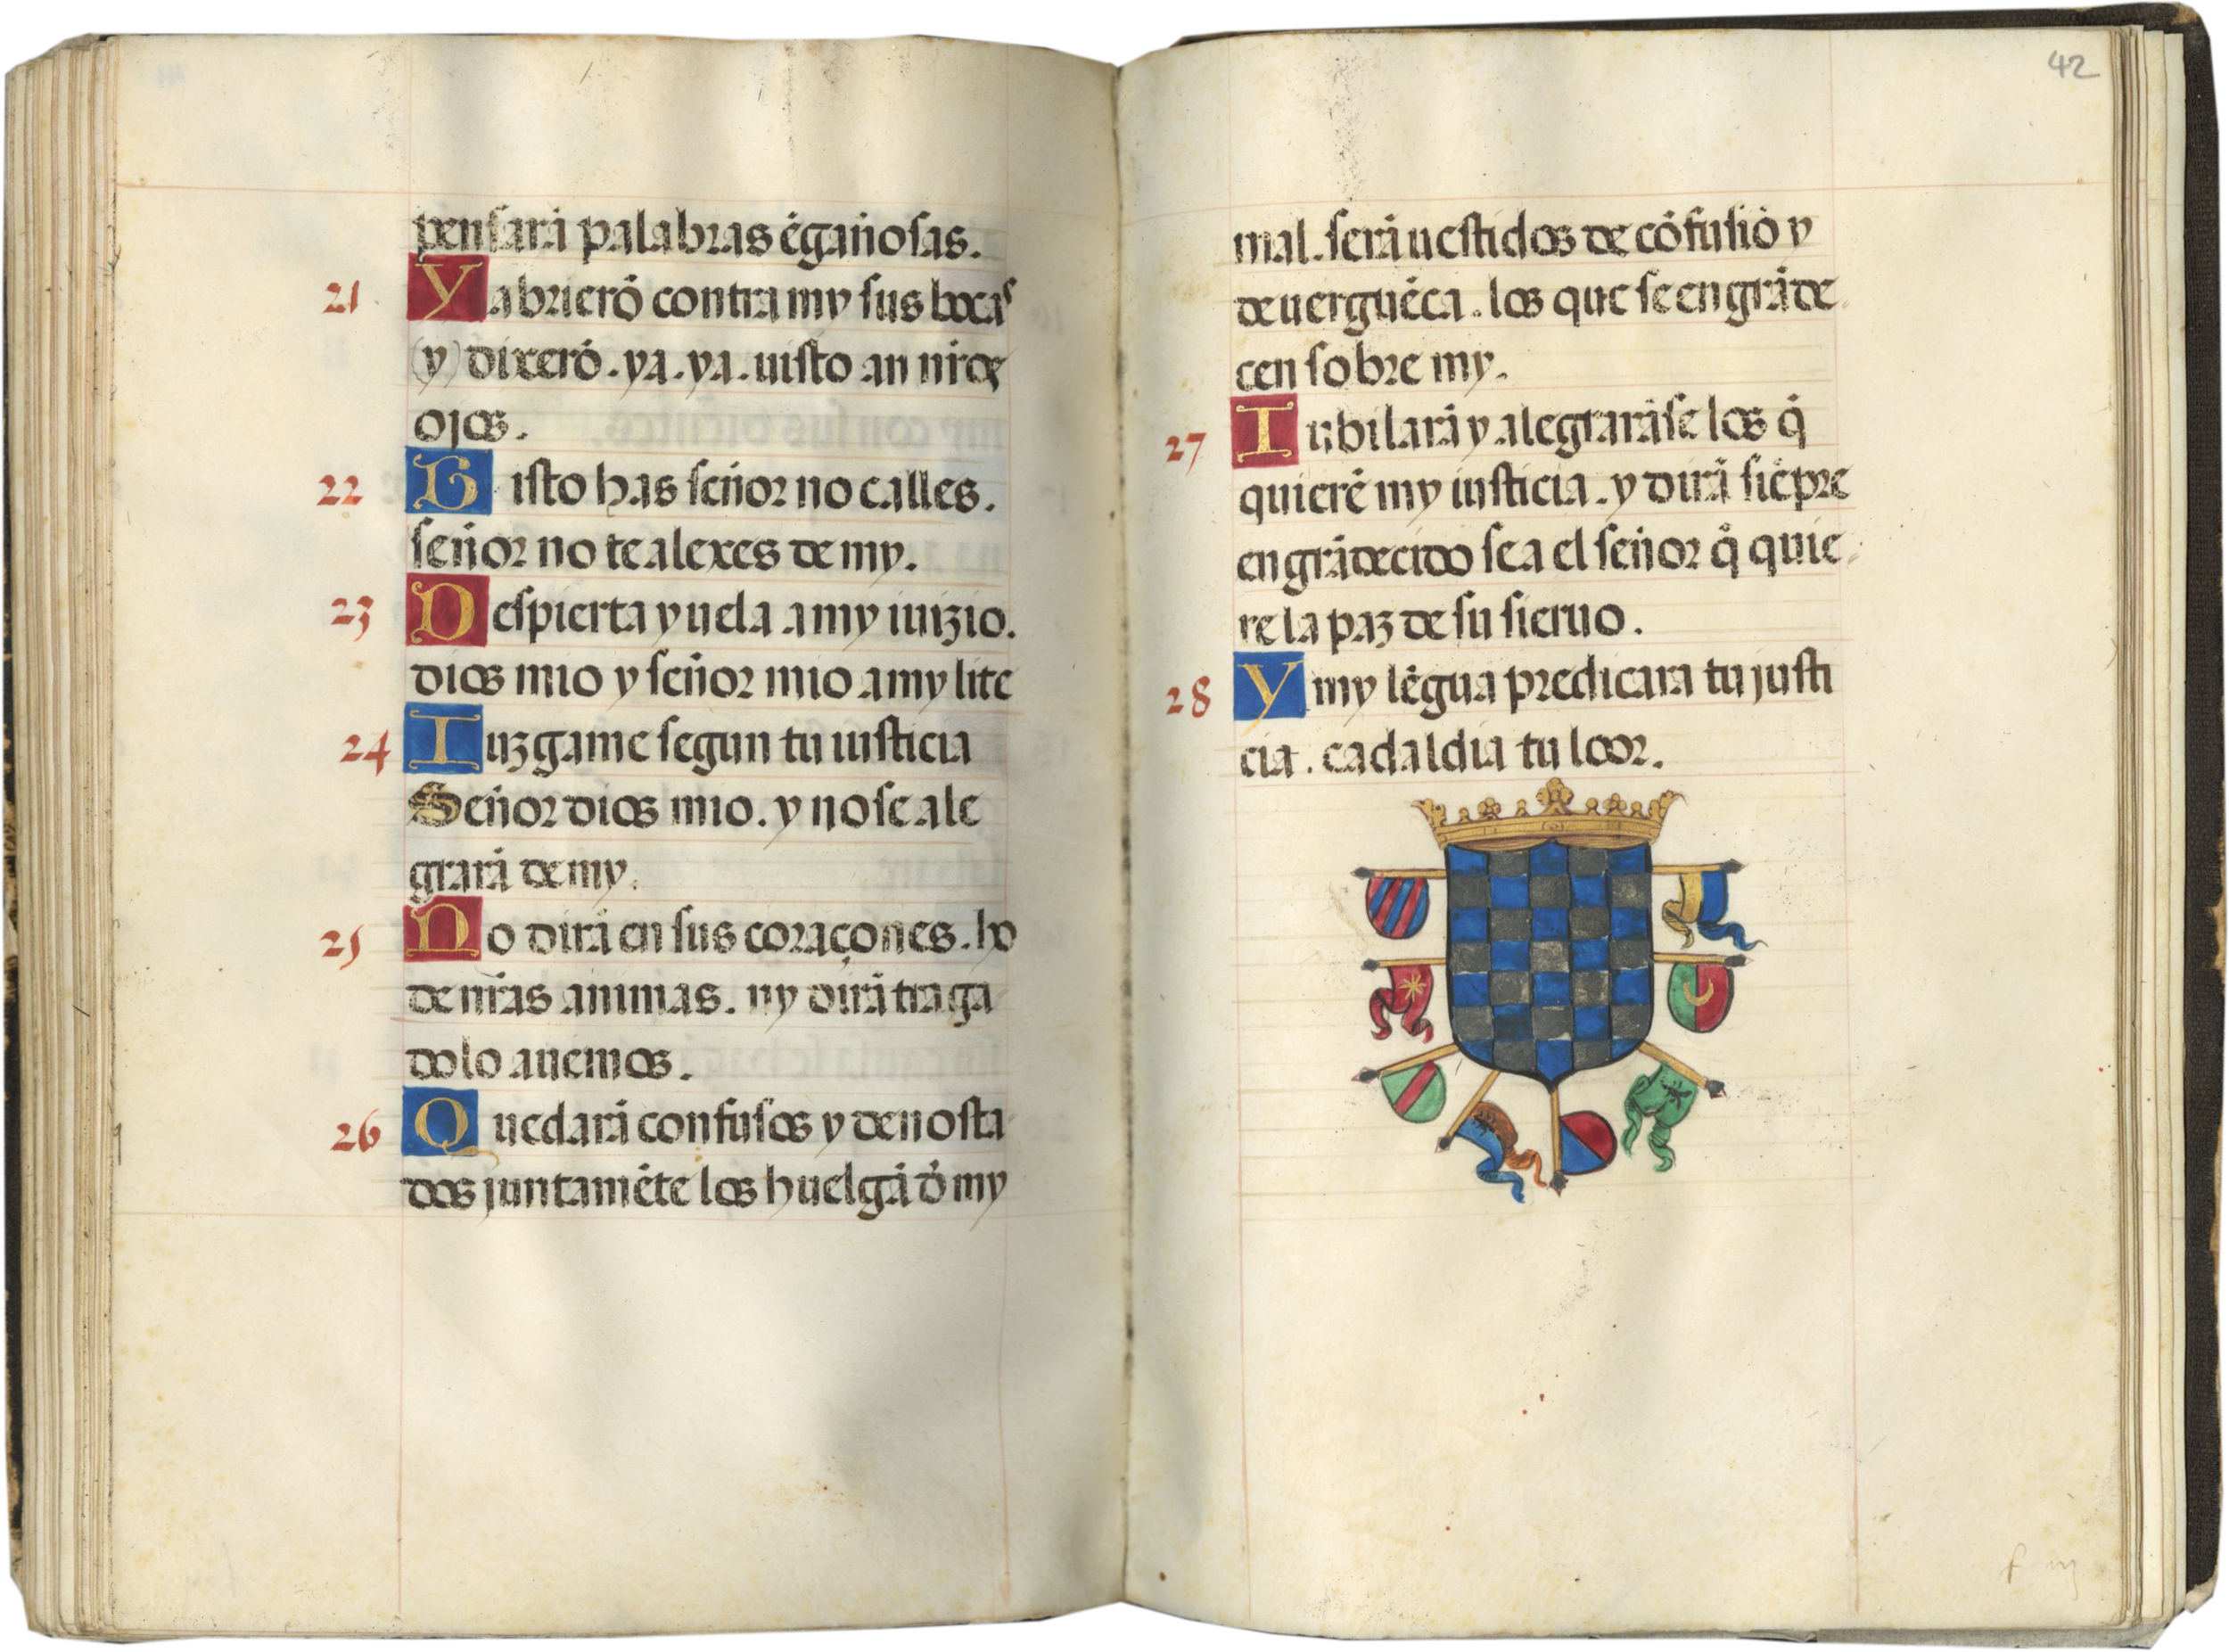 pensarā palabras ēgañosas.
21 Yabrierō contra my sus bocas
(y) dixerō. ya. ya. uisto an nr̄os
ojos.
22 Uisto has señor no calles.
señor no te alexes de my.
23 Despierta y uela a my iuizio.
dios mio y señor mio a my lite
24 Iuzgame segun tu iusticia
Señor dios mio. y no se ale
grarā de my.
25 No dirā en sus coraçones. ho
de nr̄as animas. ny dirā traga
dolo auemos.
26 Quedarā confusos y denosta
dos juntamēte los huelgā d̄ my
42
mal. serā uestidos de cōfusiō y
de uerguēca. los que se engrāde
cen sobre my.
27 Iubilarā y alegrarāse los q̄
quierē my iusticia. y dirā siēpre
engrādecido sea el señor q̄ quie
re la paz de su sieruo.
28 Y my lēgua predicara tu justi
cia. cada l dia tu loor.